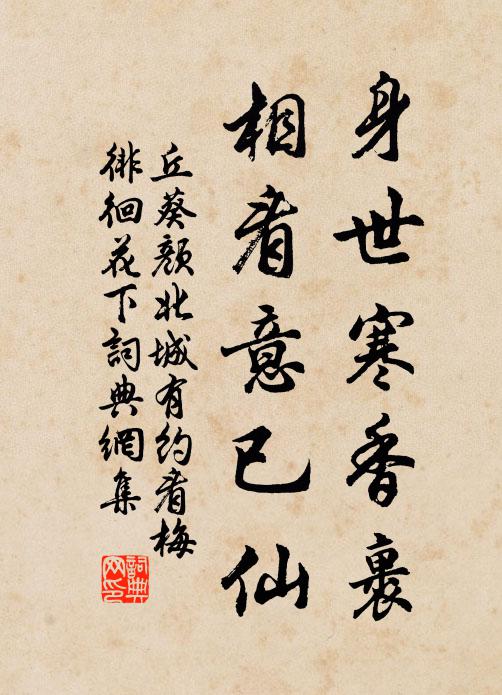 身世寒香裹
相看意已仙
丘葵顏北城有約看梅
徘徊花下詞典網集
詞典网印